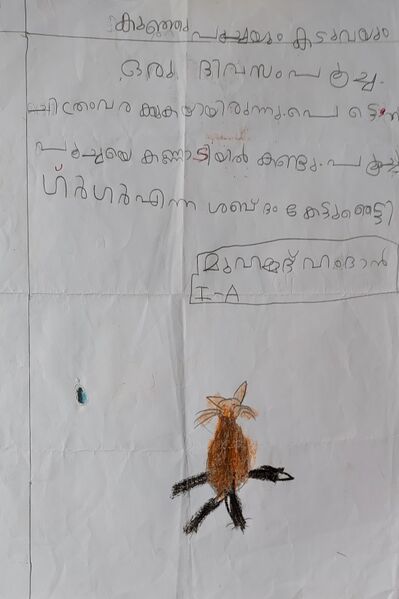 കുഞ്ഞു പൂച്ചയും കടുവയും
ഒരു ദിവസം പൂച്ച
ചിത്രംവര ക്കുകയായിരുന്നു. പെ ട്ടെന്ന്
പൂച്ചയെ കണ്ണാടിയിൽ കണ്ടു. പൂച്ച
ഗർഗർ എന്ന ശബ്ദം കേട്ടു ഞെട്ടി
മുഹമ്മദ് ഹംദാൻ
I-A